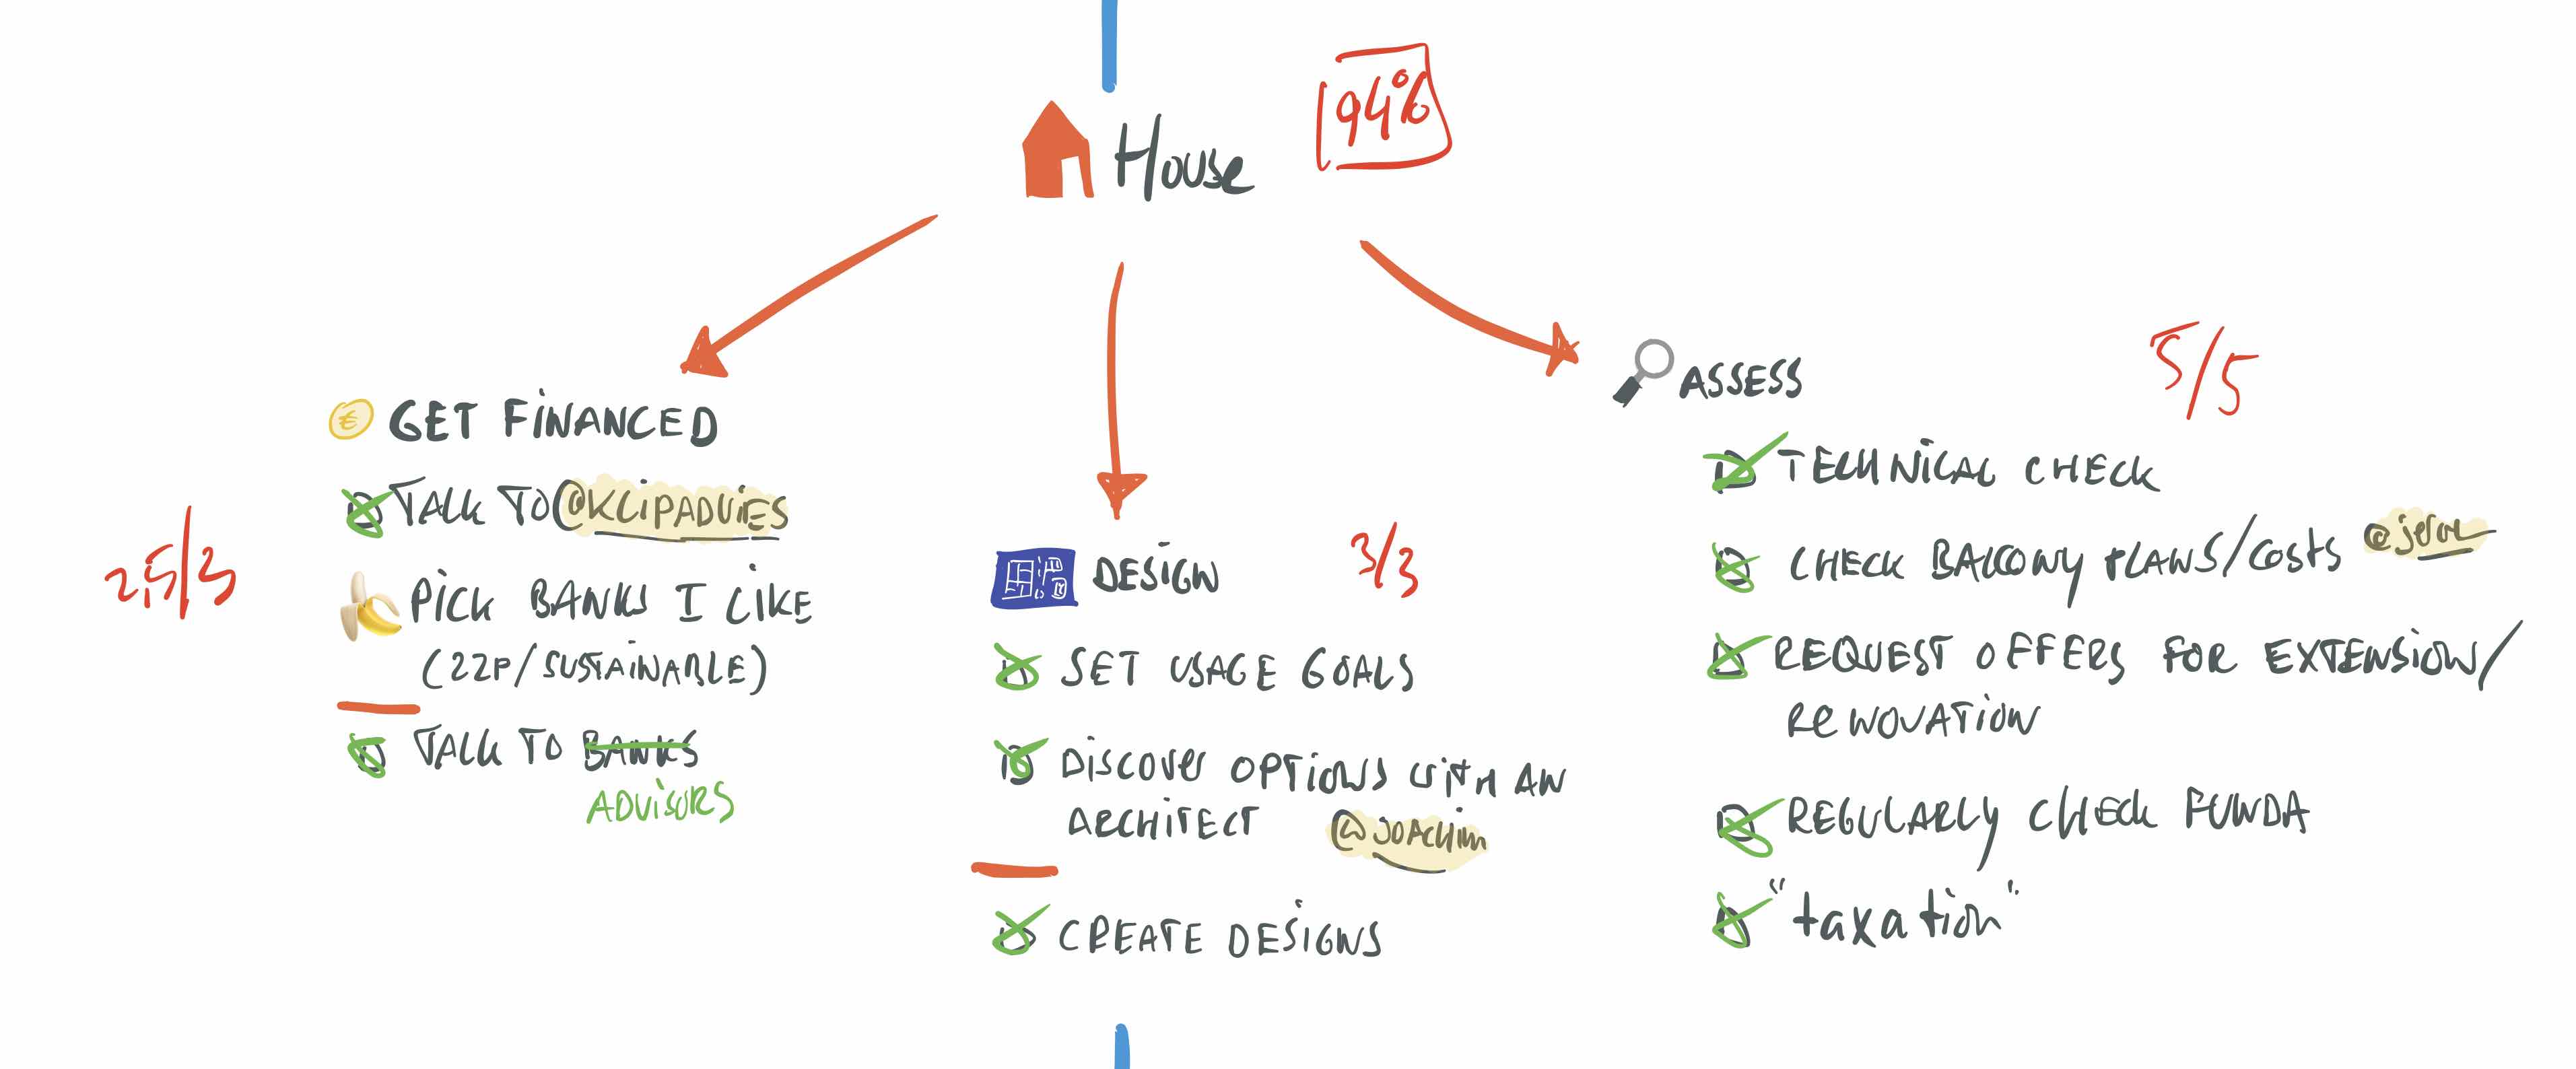 House
94%
GET FINANCED
TALK TO @KLIPADVIES
PICK BANKS I LIKE
(ZZP/SUSTAINABLE)
TALK TO BANKS
ADVISORS
2,5/3
DESIGN
3/3
SET USAGE GOALS
DISCOVER OPTIONS WITH AN
ARCHITECT @JOACHIM
CREATE DESIGNS
ASSESS
5/5
TECHNICAL CHECK
CHECK BALCONY PLANS/COSTS
REQUEST OFFERS FOR EXTENSION/
RENOVATION
REGULARLY CHECK FUNDA
"taxation"